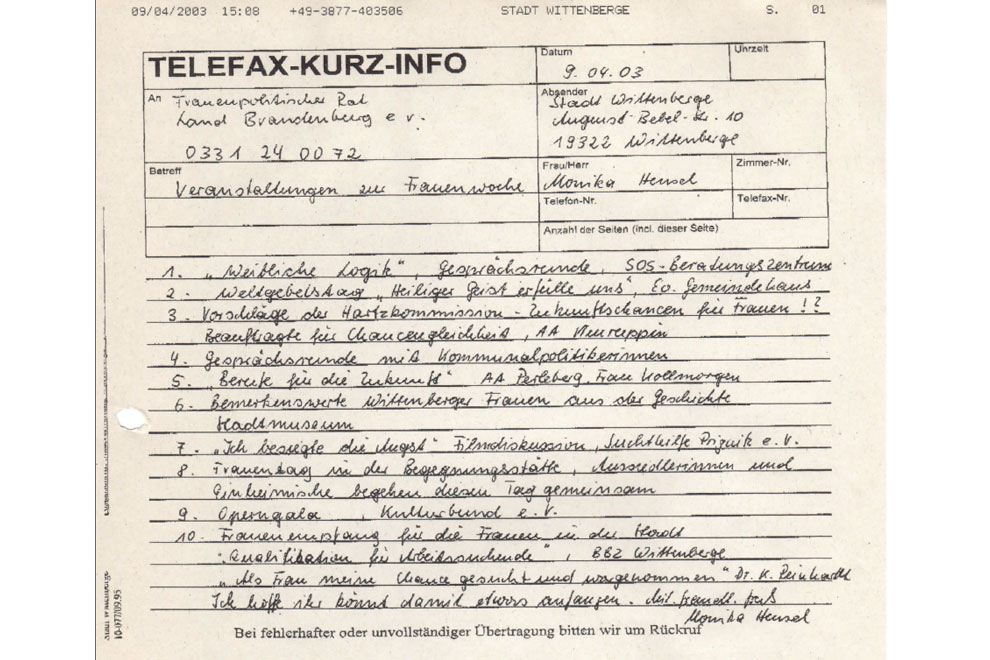 09/04/2003 15:08 +49-3877-403506 STADT WITTENBERGE S. 01
TELEFAX-KURZ-INFO
Datum
9.04.03
Uhrzeit
An Frauenpolitischer Rat
Land Brandenburg e.V.
0331 24 00 72
Absender
Stadt Wittenberge
August-Bebel-Str. 10
19322 Wittenberge
Betreff
Veranstaltungen zur Frauenwoche
Frau/Herr
Monika Hensel
Zimmer-Nr.
Telefon-Nr.
Telefax-Nr.
Anzahl der Seiten (incl. dieser Seite)
1. "Weibliche Logik", Gesprächsrunde, SOS-Beratungszentrum
2. Weltgebetstag "Heiliger Geist erfülle uns", Ev. Gemeindehaus
3. Vorschläge der Hartzkommission - Zukunftschancen für Frauen !?
Beauftragte für Chancengleichheit, AA Neuruppin
4. Gesprächsrunde mit Kommunalpolitikerinnen
5. "Berufe für die Zukunft" AA Perleberg, Frau Kollmorgen
6. Bemerkenswerte Wittenberger Frauen aus der Geschichte
Stadtmuseum
7. "Ich besiegte die Angst" Filmdiskussion, Suchthilfe Prignitz e.V.
8. Frauentag in der Begegnungsstätte, Aussiedlerinnen und
Einheimische begehen diesen Tag gemeinsam
9. Operngala, Kulturbund e.V.
10. Frauenempfang für die Frauen in der Stadt
"Qualifikation für Arbeitssuchende", BBZ Wittenberge
"Als Frau meine Chance gesucht und wargenommen" Dr. K. Reinhardt
Ich hoffe ihr könnt damit etwas anfangen. Mit freundl. Gruß
Monika Hensel
Bei fehlerhafter oder unvollständiger Übertragung bitten wir um Rückruf
10-077/09.95